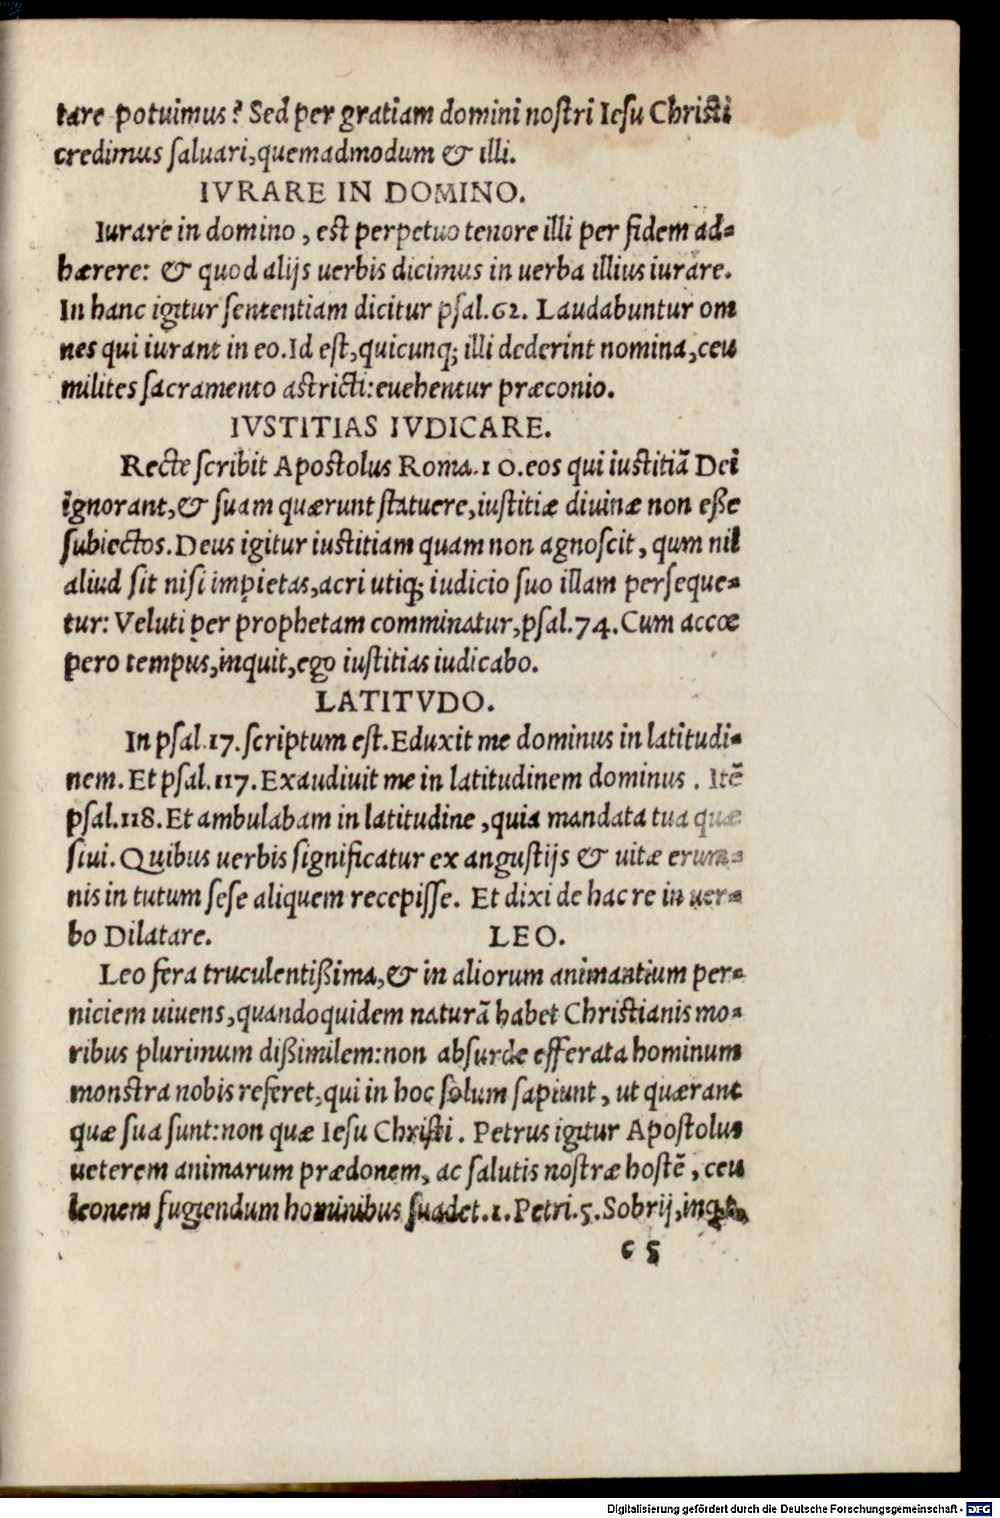 tare potuimus? Sed per gratiam domini nostri Iesu Christi
credimus saluari, quemadmodum & illi.
IVRARE IN DOMINO.
Iurare in domino, est perpetuo tenore illi per fidem ad-
hærere: & quod alijs uerbis dicimus in uerba illius iurare.
In hanc igitur sententiam dicitur psal.62. Laudabuntur om
nes qui iurant in eo. Id est, quicunq; illi dederint nomina, ceu
milites sacramento astricti: euehentur præconio.
IVSTITIAS IVDICARE.
Recte scribit Apostolus Roma.10. eos qui iustitiā Dei
ignorant, & suam quærunt statuere, iustitiæ diuinæ non eße
subiectos. Deus igitur iustitiam quam non agnoscit, qum nil
aliud sit nisi impietas, acri utiq; iudicio suo illam perseque-
tur: Veluti per prophetam comminatur, psal.74. Cum accœ
pero tempus, inquit, ego iustitias iudicabo.
LATITVDO.
In psal.17. scriptum est. Eduxit me dominus in latitudi-
nem. Et psal.117. Exaudiuit me in latitudinem dominus. Itē
psal.118. Et ambulabam in latitudine, quia mandata tua quæ
siui. Quibus uerbis significatur ex angustijs & uitæ erum-
nis in tutum sese aliquem recepisse. Et dixi de hac re in uer-
bo Dilatare. LEO.
Leo fera truculentißima, & in aliorum animantium per-
niciem uiuens, quandoquidem naturā habet Christianis mo-
ribus plurimum dißimilem: non absurde efferata hominum
monstra nobis referet, qui in hoc solum sapiunt, ut quærant
quæ sua sunt: non quæ Iesu Christi. Petrus igitur Apostolus
ueterem animarum prædonem, ac salutis nostræ hostē, ceu
leonem fugiendum hominibus suadet.1. Petri.5. Sobrij, inqt,
c 5
Digitalisierung gefördert durch die Deutsche Forschungsgemeinschaft - DFG